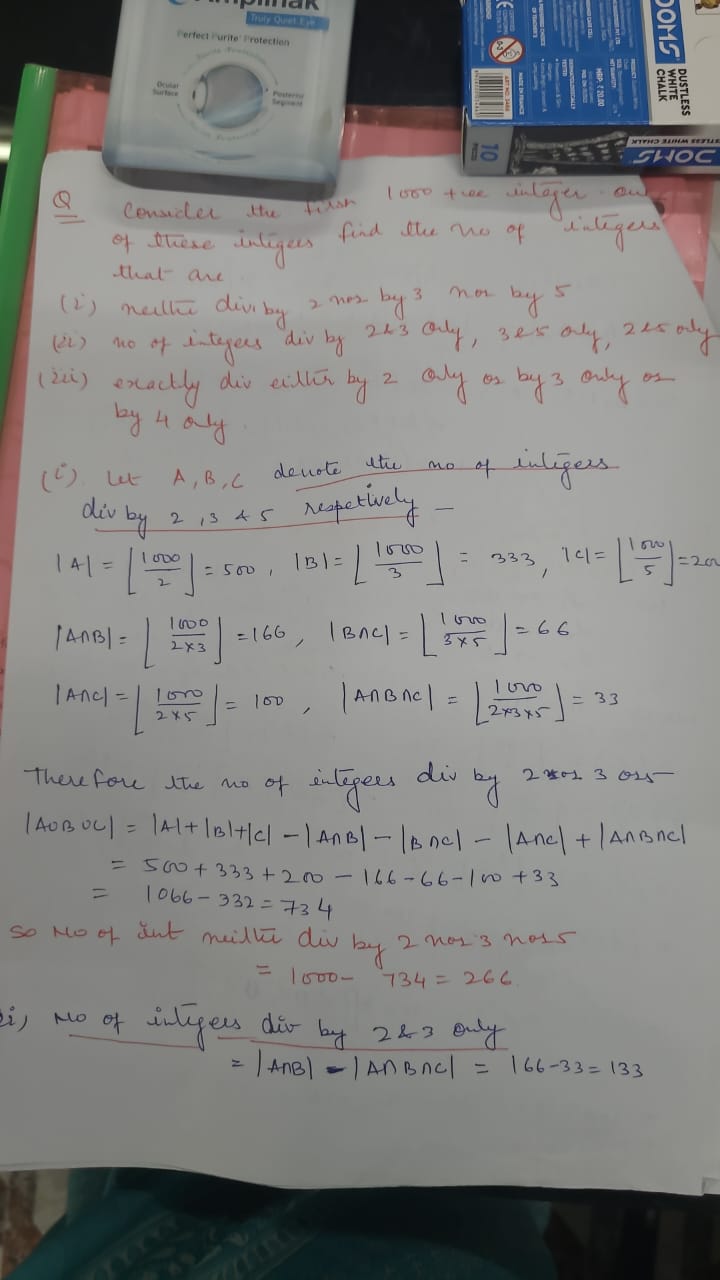 Truly Quiet Eye
Perfect Purite Protection
Ocular Surface
Posterior Segment
DOMS
DUSTLESS
WHITE
CHALK
MRP: ₹ 20.00
10
DOMS
Q Consider the first 1000 +ive integer
of these integers find the no of integers
that are
(i) neither div by 2 nor by 3 nor by 5
(ii) no of integers div by 2&3 only, 3&5 only, 2&5 only
(iii) exactly div either by 2 only or by 3 only or
by 4 only.
(i) Let A, B, C denote the no of integers
div by 2, 3 & 5 respetively –
|A| = ⌊1000/2⌋ = 500, |B| = ⌊1000/3⌋ = 333, |C| = ⌊1000/5⌋ = 200
|A∩B| = ⌊1000/2×3⌋ = 166, |B∩C| = ⌊1000/3×5⌋ = 66
|A∩C| = ⌊1000/2×5⌋ = 100, |A∩B∩C| = ⌊1000/2×3×5⌋ = 33
Therefore the no of integers div by 2 or 3 or 5
|A∪B∪C| = |A|+|B|+|C| – |A∩B| – |B∩C| – |A∩C| + |A∩B∩C|
= 500 + 333 + 200 – 166 – 66 – 100 + 33
= 1066 – 332 = 734
So No of int neither div by 2 nor 3 nor 5
= 1000 – 734 = 266.
ii) No of integers div by 2&3 only
= |A∩B| – |A∩B∩C| = 166 – 33 = 133